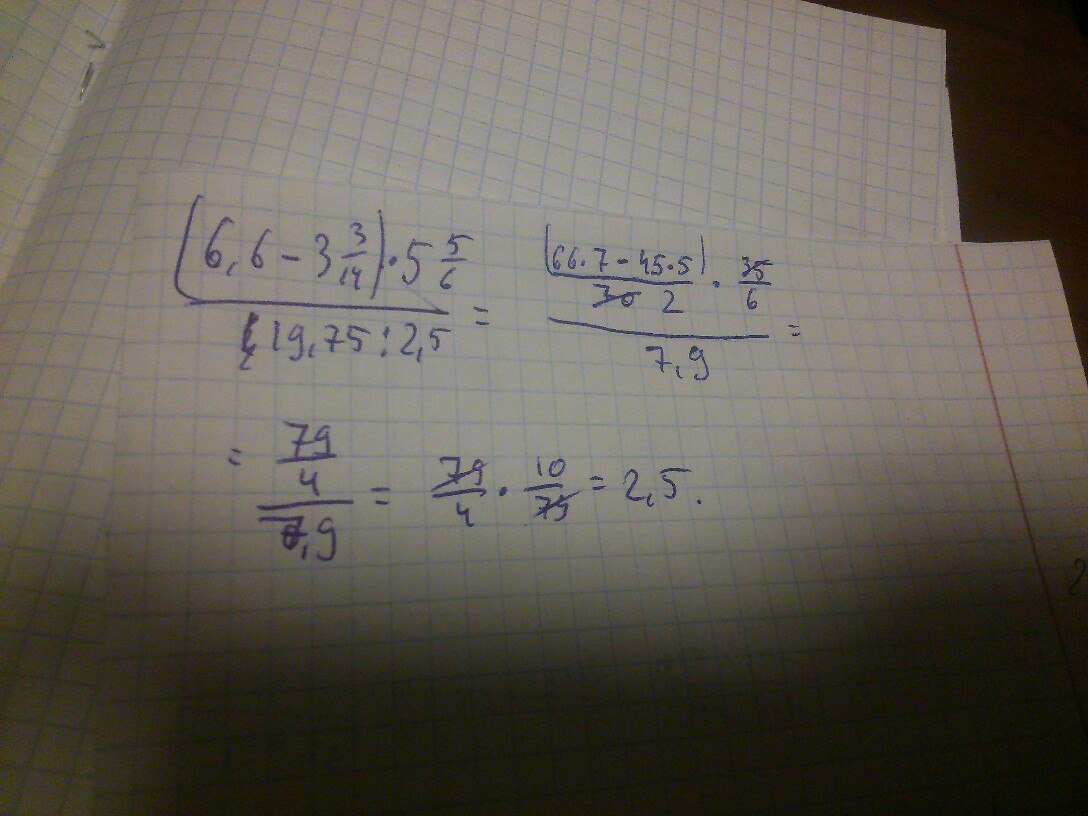 (6,6 - 3 3/14) · 5 5/6 / 19,75 : 2,5 = (66·7 - 45·5) / 30 2 · 35/6 / 7,9 =
= 79/4 / 7,9 = 79/4 · 10/79 = 2,5.
2